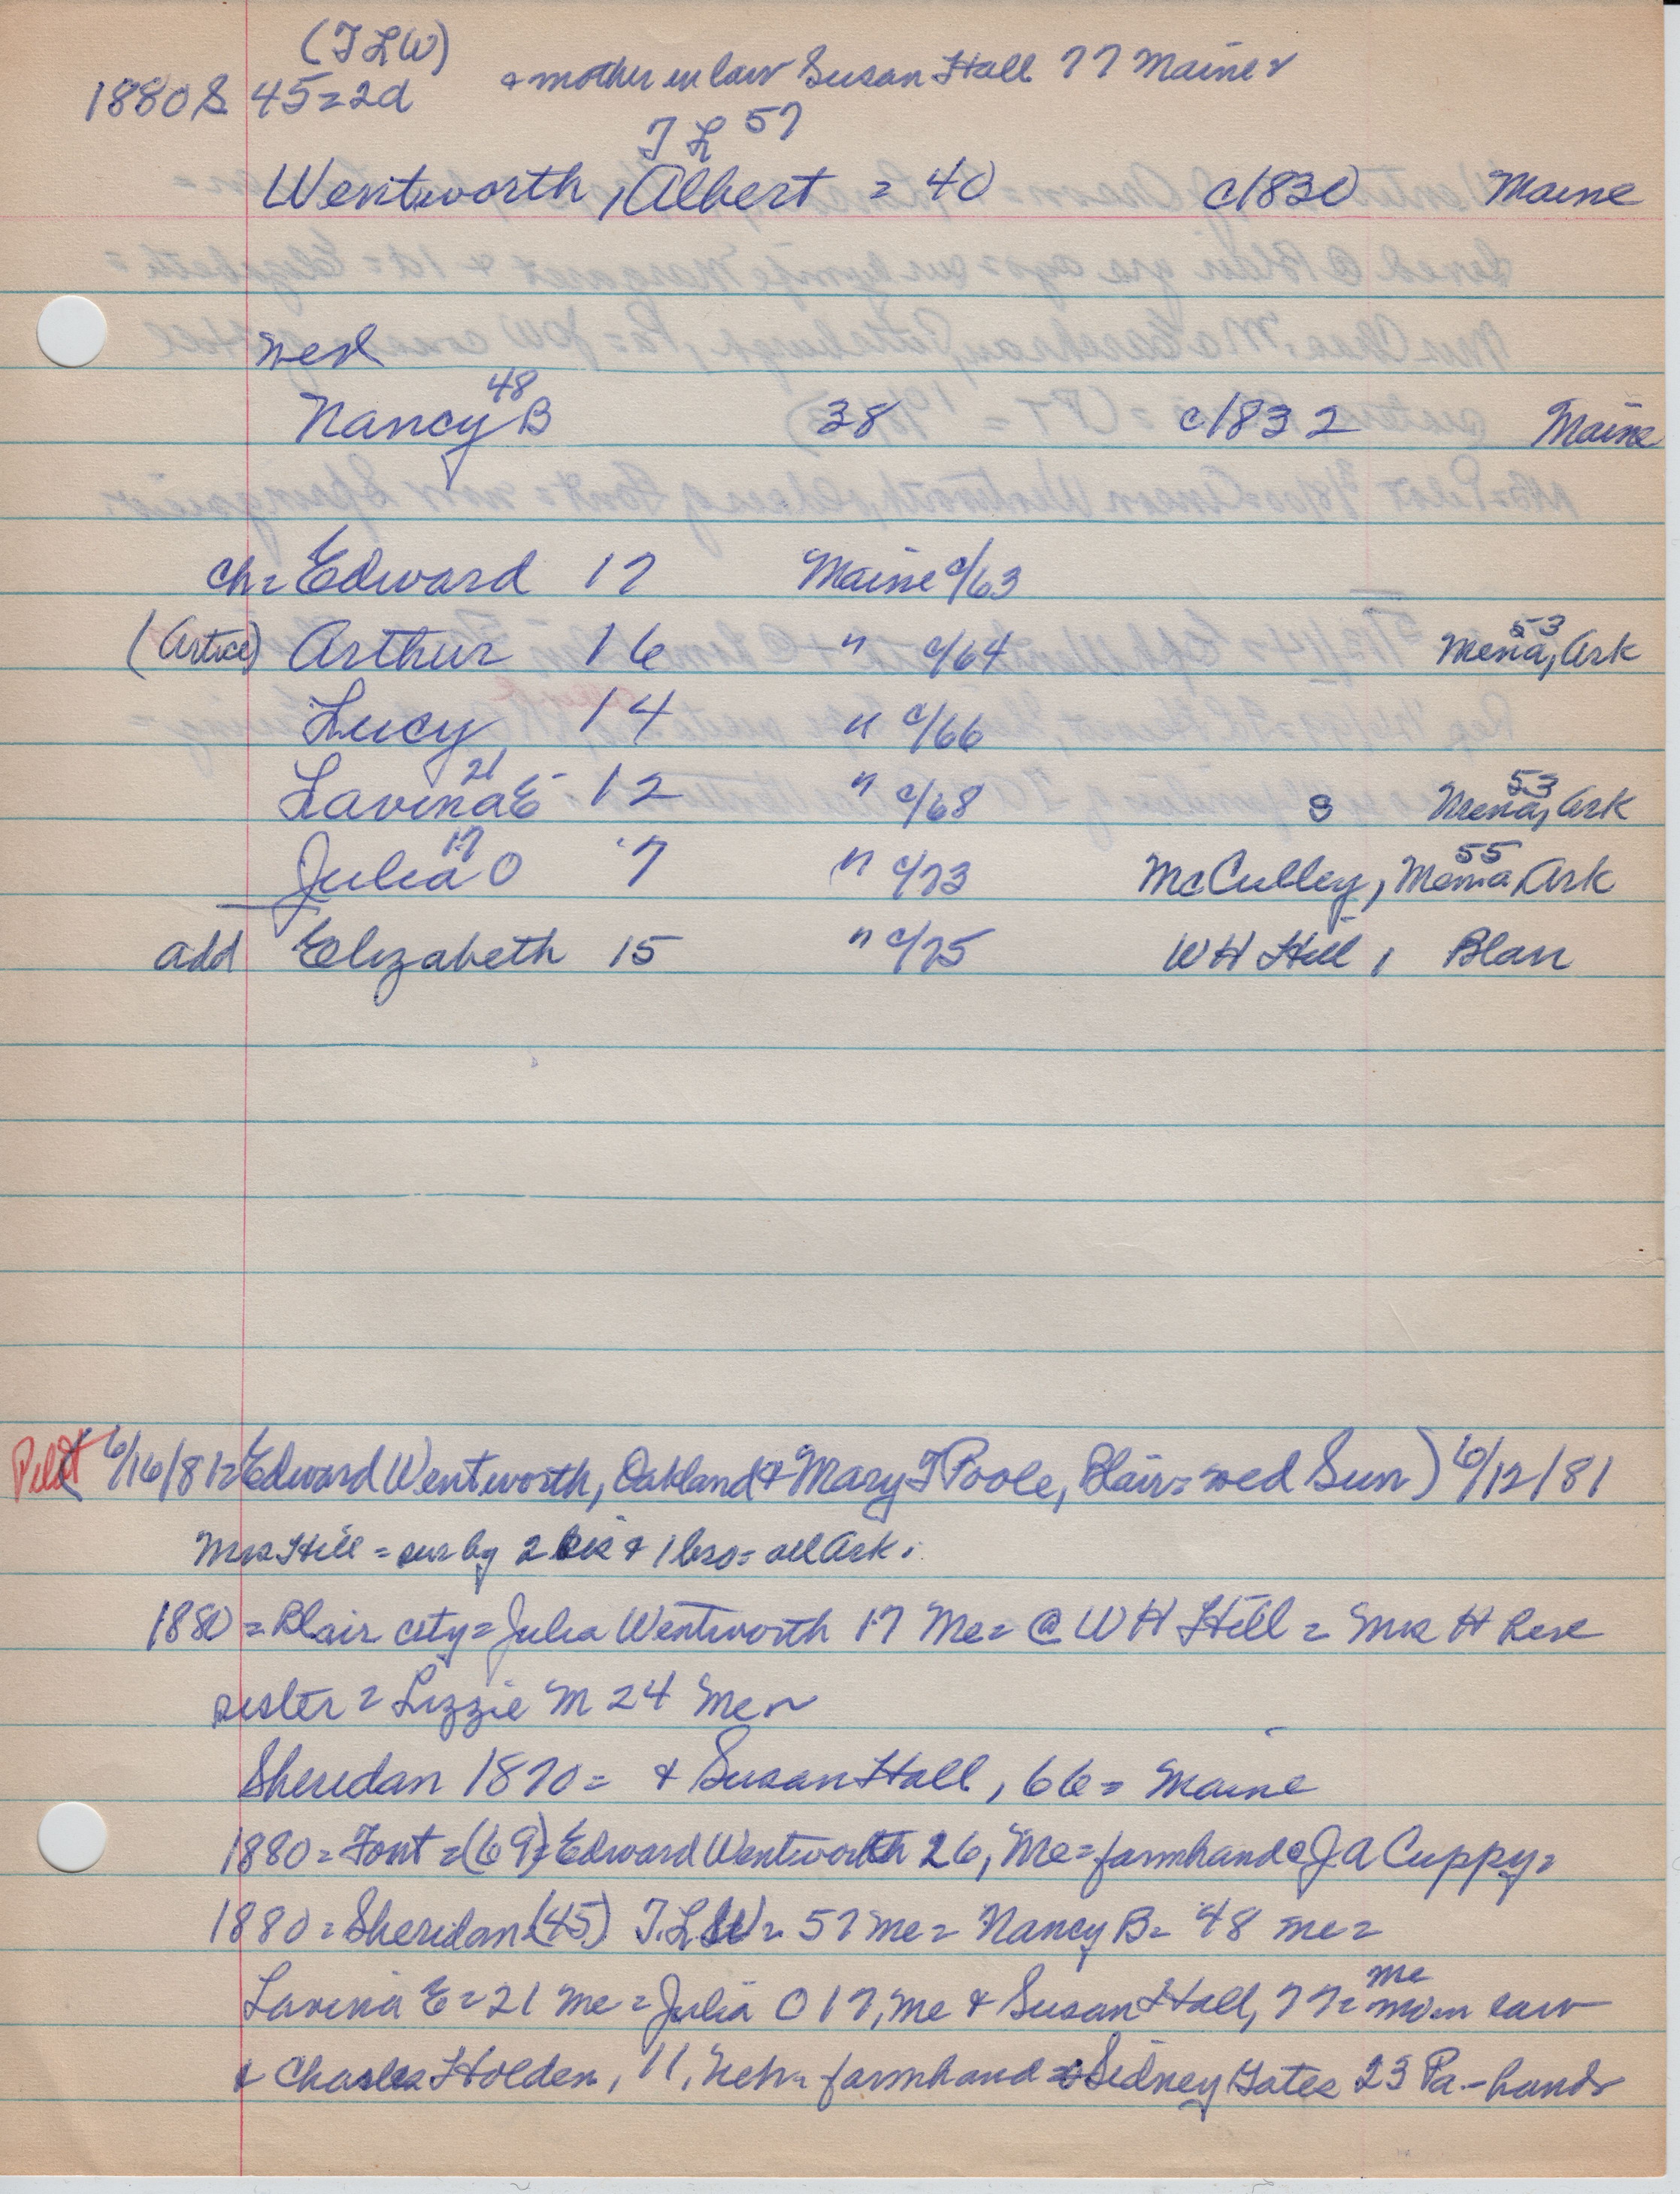 (T L W)
1880 S 45=2d & mother in law Susan Hall 77 Maine
T L 57
Wentworth, Albert = 40 c/1830 Maine
wed
48
Nancy B 38 c/1832 Maine
ch= Edward 17 Maine c/63
(Artice) Arthur 16 " c/64 53 Mena, Ark
Lucy 14 " c/66
21
Lavina E 12 " c/68 S 53 Mena, Ark
17
Julia O 7 " c/73 McCulley, 55 Mena Ark
add Elizabeth 15 " c/75 W H Hill, Blair
Pilot (6/16/81= Edward Wentworth, Oakland & Mary T Poole, Blair= wed Sun) 6/12/81
Mrs Hill = sur by 2 sis & 1 bro= all Ark.
1880 = Blair city= Julia Wentworth 17 Me= @ W H Hill = Mrs H her
sister = Lizzie M 24 Me
Sheridan 1870= & Susan Hall, 66= Maine
1880= Font =(69)= Edward Wentworth 26, Me= farmhand @ J A Cuppy=
1880= Sheridan (45) T. L W= 57 Me= Nancy B= 48 Me=
Lavina E= 21 Me = Julia O 17, Me & Susan Hall, 77= Me mo in law
& Charles Holden, 11, Neb= farmhand & Sidney Gates 23 Pa - hand